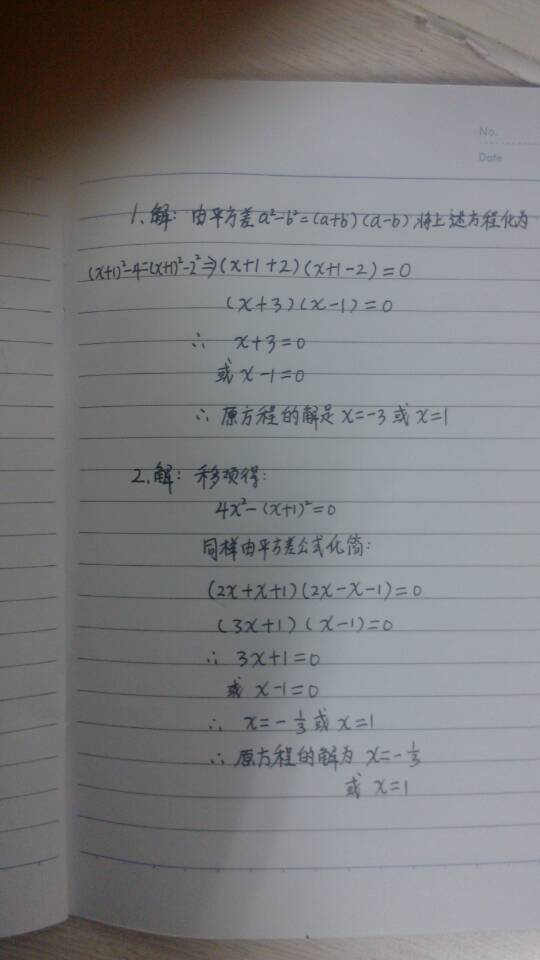 No.
Date
1、解：由平方差a²-b²=(a+b)(a-b)将上述方程化为
(x+1)²-4=(x+1)²-2²⇒(x+1+2)(x+1-2)=0
(x+3)(x-1)=0
∴ x+3=0
或 x-1=0
∴ 原方程的解是 x=-3 或 x=1
2、解：移项得：
4x²-(x+1)²=0
同样由平方差公式化简：
(2x+x+1)(2x-x-1)=0
(3x+1)(x-1)=0
∴ 3x+1=0
或 x-1=0
∴ x=-1/3 或 x=1
∴ 原方程的解为 x=-1/3
或 x=1